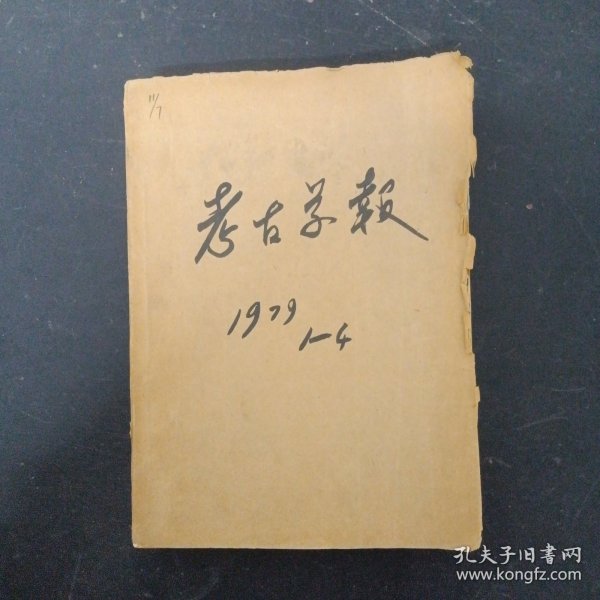 11/7
考古学報
1979
1-4
孔夫子旧書网
www.kongfz.com